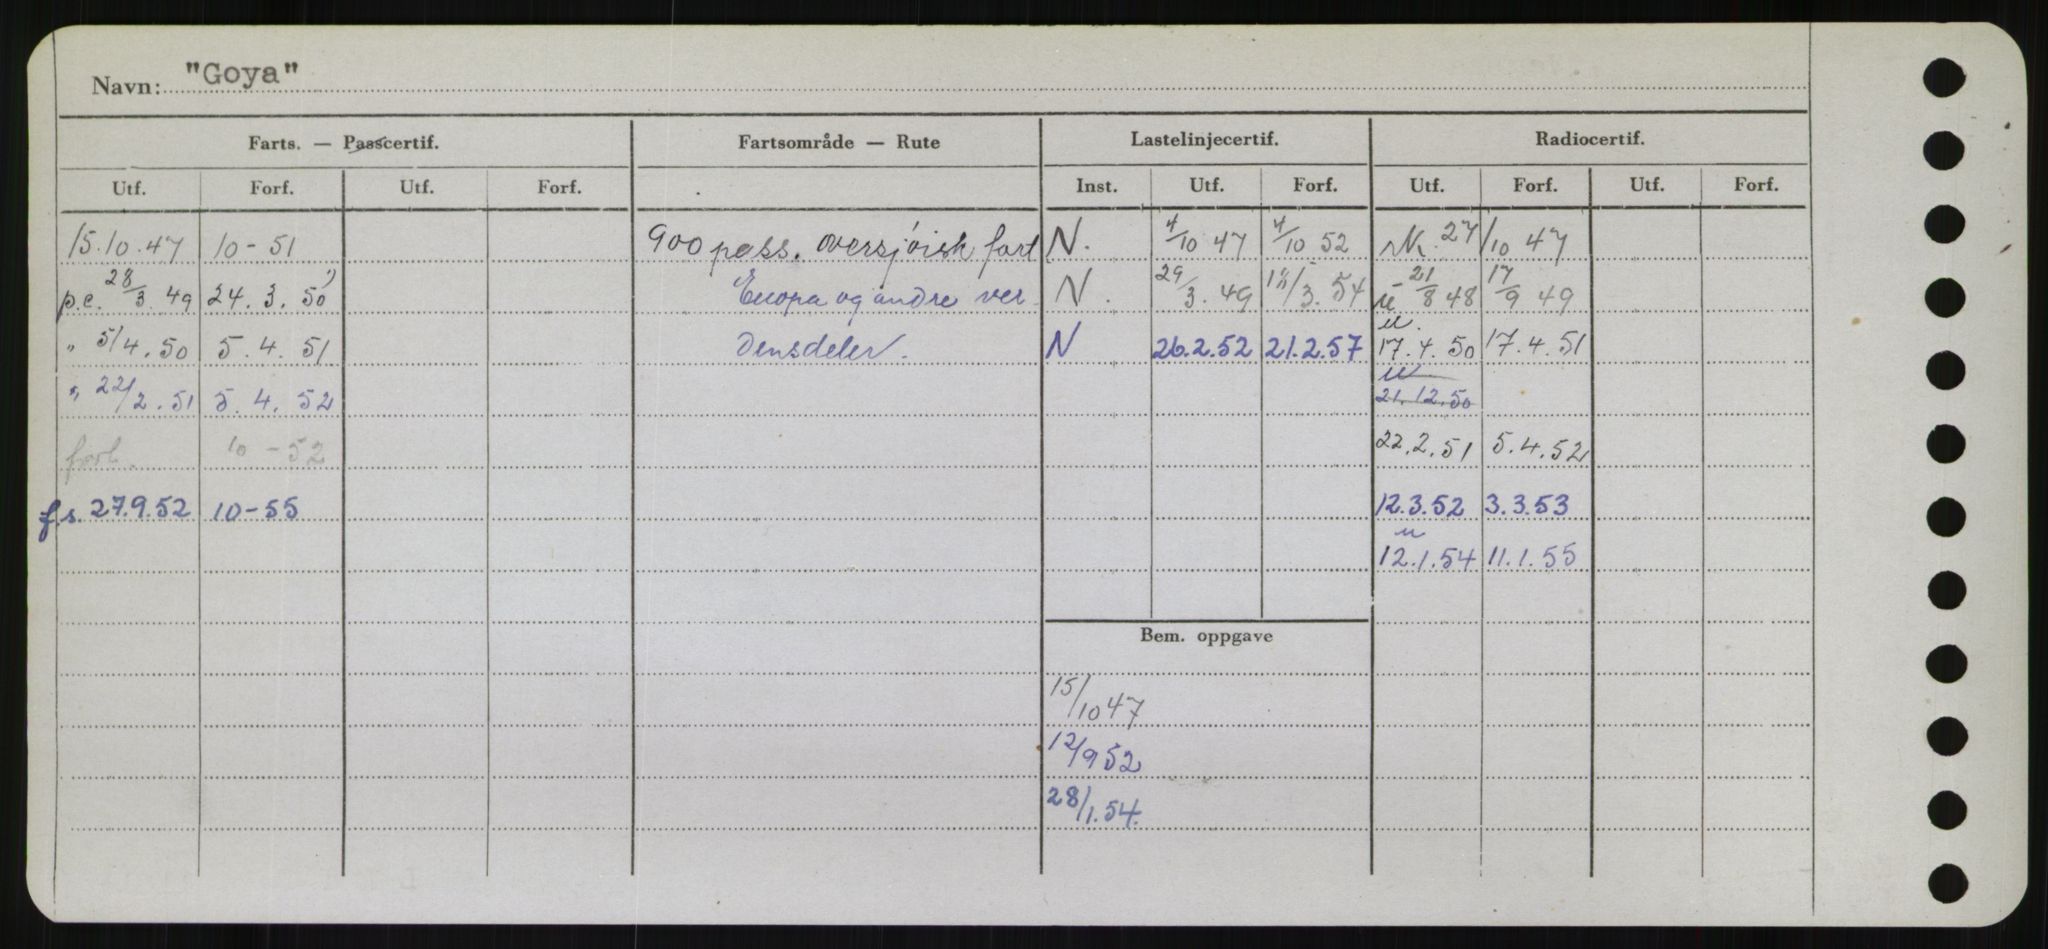 Navn: "Goya"
Farts. — Passcertif. Fartsområde — Rute Lastelinjecertif. Radiocertif.
Utf. Forf. Utf. Forf. Inst. Utf. Forf. Utf. Forf. Utf. Forf.
15.10.47 10-51 900 pass. oversjøisk fart N. 4/10 47 4/10 52 27/10 47
p.c. 28/3.49 24.3.50 Europa og andre ver- N. 29/3.49 /3.54 21/8 48 17/9 49
" 5/4.50 5.4.51 densdeler. N 26.2.52 21.2.57 17.4.50 17.4.51
" 22/2.51 5.4.52 21.12.50
forl. 10-52 22.2.51 5.4.52
fs. 27.9.52 10-55 12.3.52 3.3.53
12.1.54 11.1.55
Bem. oppgave
15/10 47
12/9 52
28/1.54.